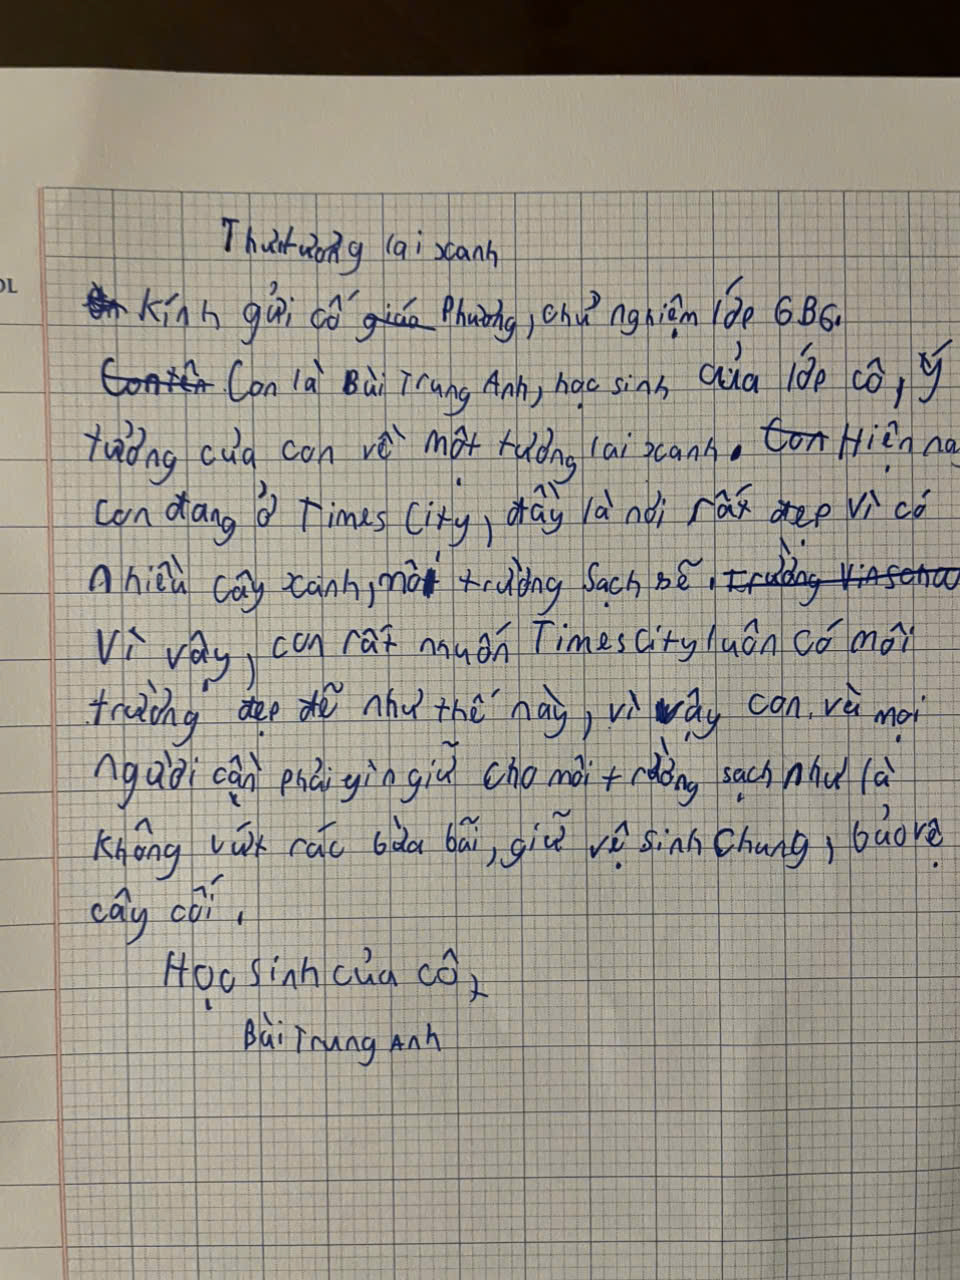 Thư tương lai xanh
OL
Kính gửi cô giáo Phương, chủ nghiệm lớp 6B6.
Con tên Con là Bùi Trung Anh, học sinh của lớp cô, Ý
tưởng của con về một tương lai xanh. Con Hiện na
con đang ở Times City, đấy là nơi rất đẹp vì có
nhiều cây xanh, môi trường sạch sẽ. trường Vinscho
Vì vậy, con rất muốn Times City luôn có môi
trường đẹp đẽ như thế này, vì vậy con và mọi
người cần phải gìn giữ cho môi trường sạch như là
không vứt rác bừa bãi, giữ vệ sinh chung, bảo vệ
cây cối.
Học sinh của cô,
Bùi Trung Anh